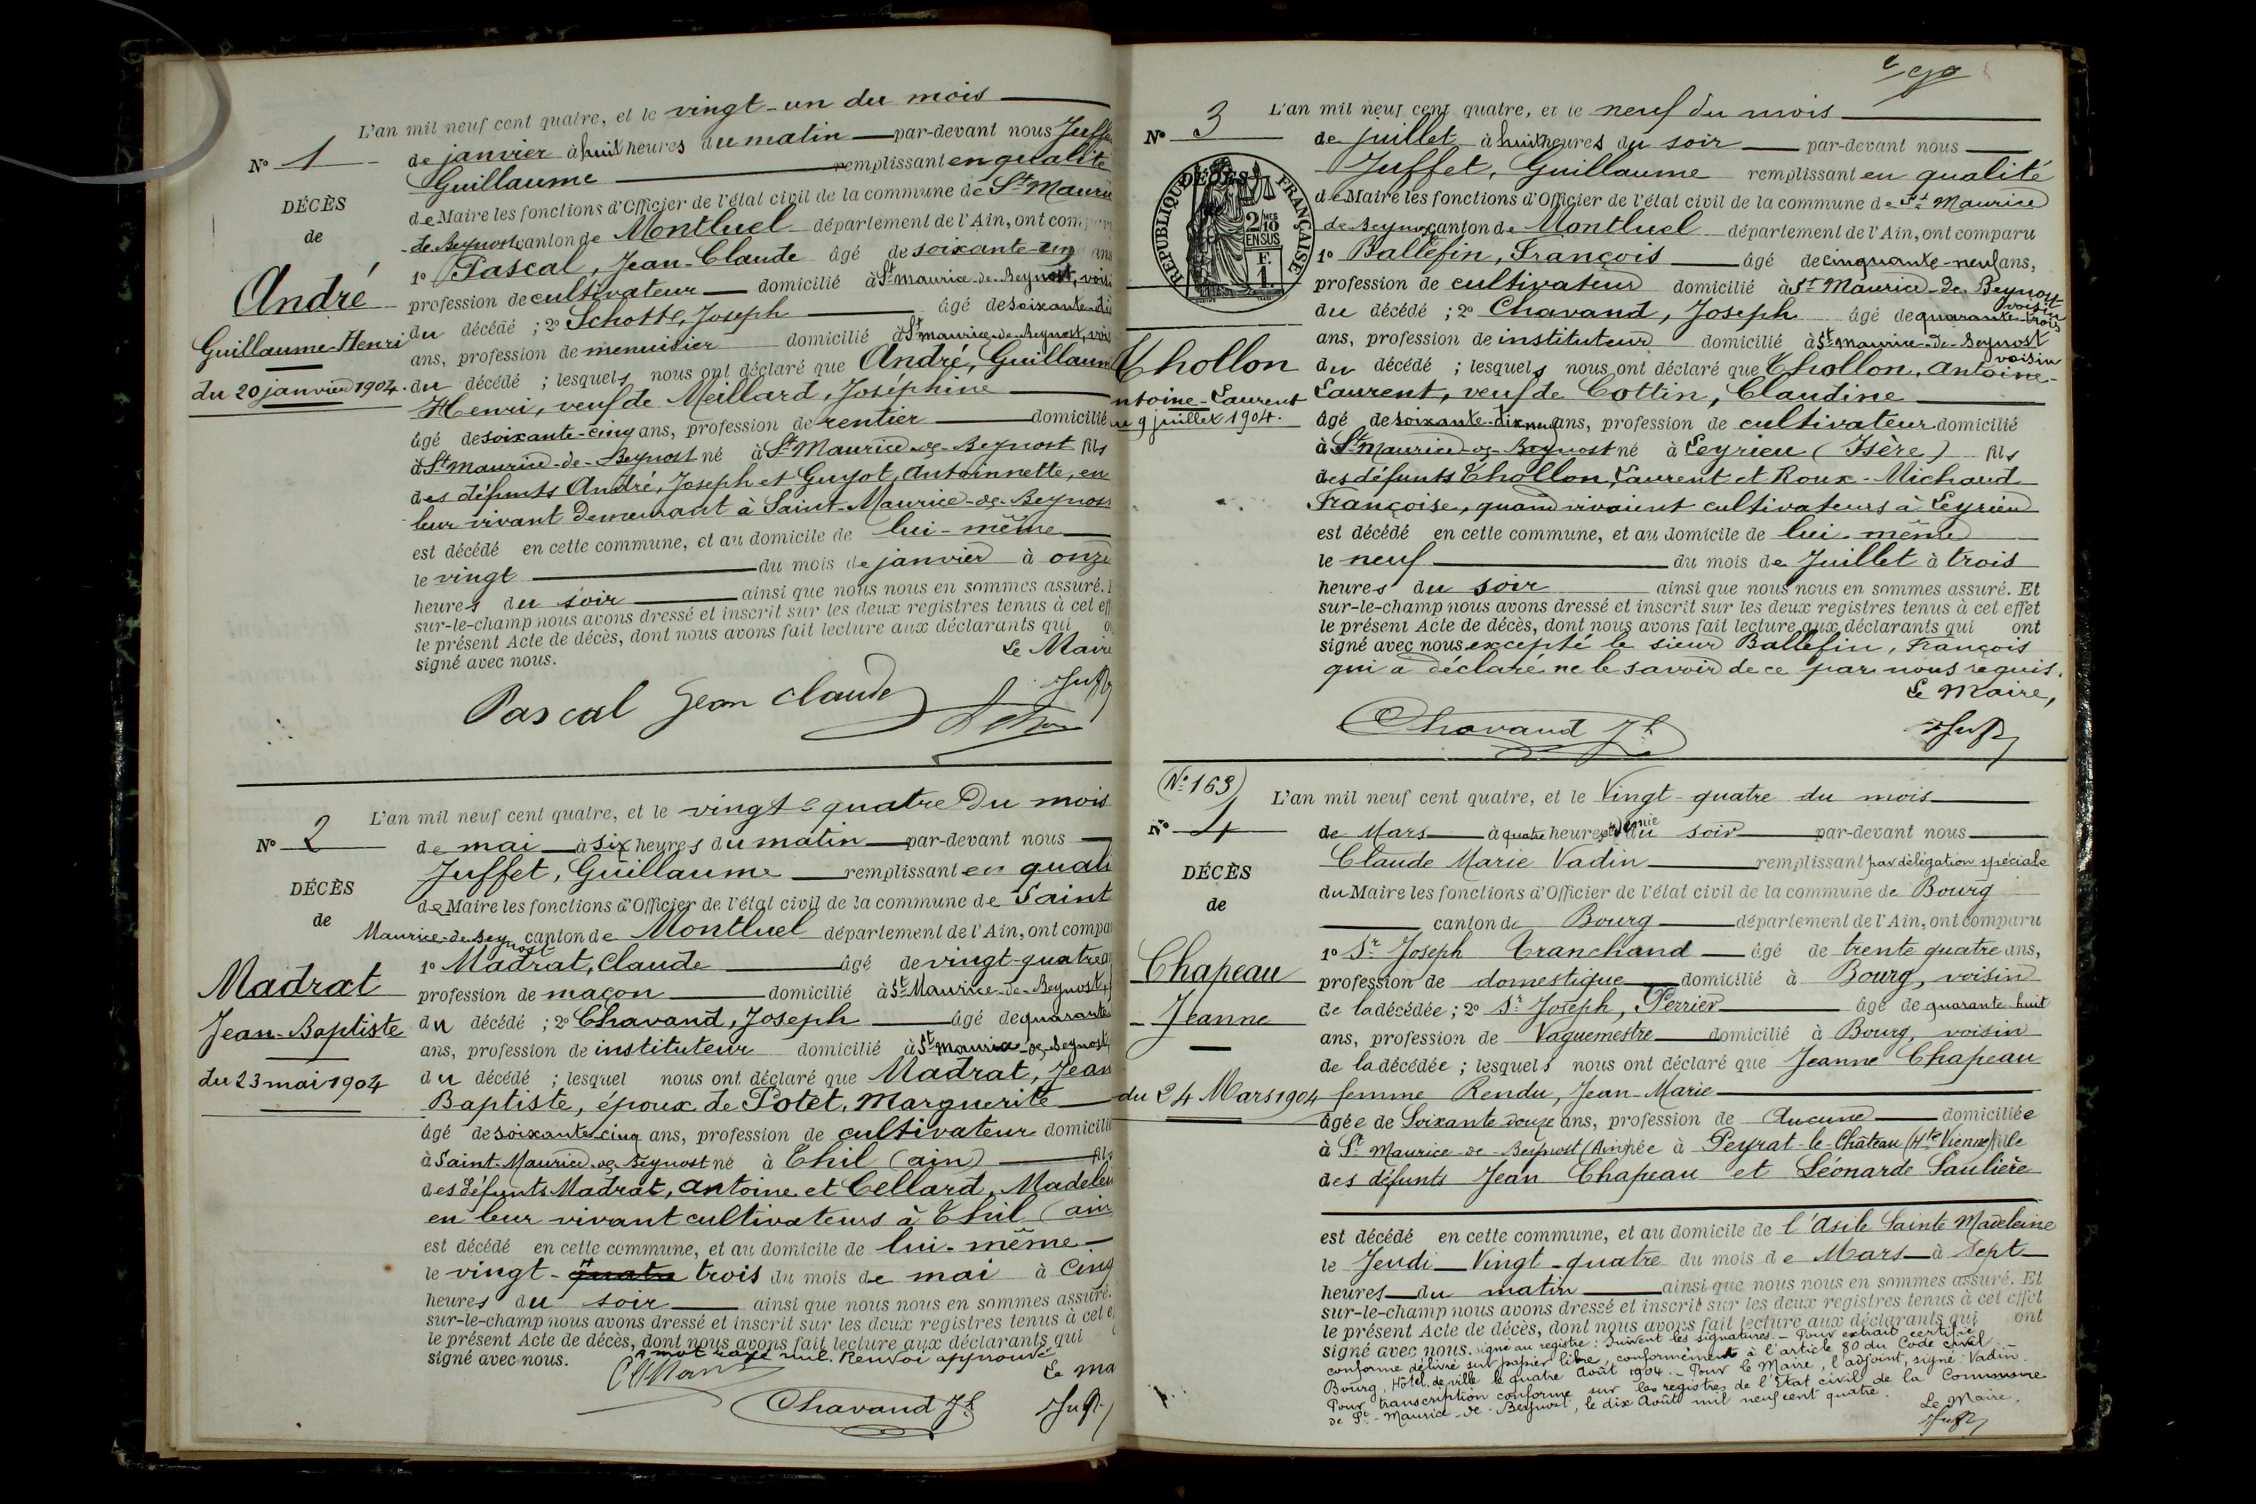 L'an mil neuf cent quatre, et le vingt-un du mois
N° 1
de janvier à huit heures du matin par-devant nous Juffe
Guillaume remplissant en qualité
DÉCÈS
de Maire les fonctions d'Officier de l'état civil de la commune de St Mauric
de
de Beynost canton de Montluel département de l'Ain, ont comparu
1° Pascal, Jean-Claude âgé de soixante-un ans
André
profession de cultivateur domicilié à St Maurice-de-Beynost, voisi
du décédé ; 2° Schotte, Joseph âgé de soixante-di
Guillaume-Henri
ans, profession de menuisier domicilié à St Maurice-de-Beynost, vois
du 20 janvier 1904.
du décédé ; lesquels nous ont déclaré que André, Guillaum
Henri, veuf de Meillard, Joséphine
âgé de soixante-cinq ans, profession de rentier domicilié
à St Maurice-de-Beynost né à St Maurice-de-Beynost fils
des défunts André, Joseph et Guyot, Antoinnette, en
leur vivant demeurant à Saint-Maurice-de-Beynos
est décédé en cette commune, et au domicile de lui-même
le vingt du mois de janvier à onze
heures du soir ainsi que nous nous en sommes assuré.
sur-le-champ nous avons dressé et inscrit sur les deux registres tenus à cet eff
le présent Acte de décès, dont nous avons fait lecture aux déclarants qui o
signé avec nous.
Le Maire
Pascal Jean Claude
L'an mil neuf cent quatre, et le vingt-quatre Du mois
N° 2
de mai à six heures du matin par-devant nous
Juffet, Guillaume remplissant en quali
DÉCÈS
de Maire les fonctions d'Officier de l'état civil de la commune de Saint
de
Maurice-de-Beynost canton de Montluel département de l'Ain, ont compa
1° Madrat, Claude âgé de vingt-quatre
Madrat
profession de maçon domicilié à St Maurice-de-Beynost,
Jean-Baptiste
du décédé ; 2° Chavand, Joseph âgé de quarante
ans, profession de instituteur domicilié à St Maurice-de-Beynost,
du 23 mai 1904
du décédé ; lesquel nous ont déclaré que Madrat, Jean
Baptiste, époux de Potet, Marguerite
âgé de soixante-cinq ans, profession de cultivateur domicilié
à Saint-Maurice-de-Beynost né à Thil (ain) fils
des défunts Madrat, Antoine et Cellard, Madelei
en leur vivant cultivateurs à Thil (ain
est décédé en cette commune, et au domicile de lui-même
le vingt-quatre trois du mois de mai à cinq
heures du soir ainsi que nous nous en sommes assuré.
sur-le-champ nous avons dressé et inscrit sur les deux registres tenus à cet e
le présent Acte de décès, dont nous avons fait lecture aux déclarants qui
signé avec nous. mot rayé nul. Renvoi approuvé
Le Ma
Chavand Jh
90
L'an mil neuf cent quatre, et le neuf du mois
N° 3
de juillet à huit heures du soir par-devant nous
Juffet, Guillaume remplissant en qualité
de Maire les fonctions d'Officier de l'état civil de la commune de St Maurice
RÉPUBLIQUE FRANÇAISE
2/10MES EN SUS
F. 1.
de Beynost canton de Montluel département de l'Ain, ont comparu
1° Ballefin, François âgé de cinquante-neuf ans,
profession de cultivateur domicilié à St Maurice-de-Beynost voisin
du décédé ; 2° Chavand, Joseph âgé de quarante-trois
ans, profession de instituteur domicilié à St Maurice-de-Beynost voisin
Thollon
du décédé ; lesquels nous ont déclaré que Thollon, Antoine-
ntoine-Laurent
Laurent, veuf de Cottin, Claudine
u 9 juillet 1904.
âgé de soixante-dix neuf ans, profession de cultivateur domicilié
à St Maurice-de-Beynost né à Leyrieu (Isère) fils
des défunts Thollon, Laurent et Roux-Michaud
Françoise, quand vivaient cultivateurs à Leyrieu
est décédé en cette commune, et au domicile de lui-même
le neuf du mois de Juillet à trois
heures du soir ainsi que nous nous en sommes assuré. Et
sur-le-champ nous avons dressé et inscrit sur les deux registres tenus à cet effet
le présent Acte de décès, dont nous avons fait lecture aux déclarants qui ont
signé avec nous excepté le sieur Ballefin, François
qui a déclaré ne le savoir de ce par nous requis.
Le Maire,
Chavand Jh
(N° 163)
L'an mil neuf cent quatre, et le Vingt-quatre du mois
N° 4
de Mars à quatre heures et demie du soir par-devant nous
Claude Marie Vadin remplissant par délégation spéciale
DÉCÈS
du Maire les fonctions d'Officier de l'état civil de la commune de Bourg
de
canton de Bourg département de l'Ain, ont comparu
1° Sr Joseph Tranchand âgé de trente quatre ans,
Chapeau
profession de domestique domicilié à Bourg, voisin
Jeanne
de la décédée ; 2° Sr Joseph, Perrier âgé de quarante huit
ans, profession de Vaguemestre domicilié à Bourg, voisin
de la décédée ; lesquels nous ont déclaré que Jeanne Chapeau
du 24 Mars 1904
femme Rendu, Jean-Marie
âgée de Soixante douze ans, profession de Aucune domiciliée
à St Maurice-de-Beynost (Ain) née à Peyrat-le-Château (Hte Vienne) fille
des défunts Jean Chapeau et Léonarde Saulière
est décédé en cette commune, et au domicile de l'Asile Sainte Madeleine
le Jeudi Vingt-quatre du mois de Mars à Sept
heures du matin ainsi que nous nous en sommes assuré. Et
sur-le-champ nous avons dressé et inscrit sur les deux registres tenus à cet effet
le présent Acte de décès, dont nous avons fait lecture aux déclarants qui ont
signé avec nous. signé au registre : Suivent les signatures. - Pour extrait certifié
conforme délivré sur papier libre, conformément à l'article 80 du Code civil.
Bourg, Hôtel de ville le quatre Août 1904. - Pour le Maire, l'adjoint, signé : Vadin.
Pour transcription conforme sur les registres de l'Etat civil de la Commune
de St-Maurice-de-Beynost, le dix Août mil neuf cent quatre.
Le Maire,